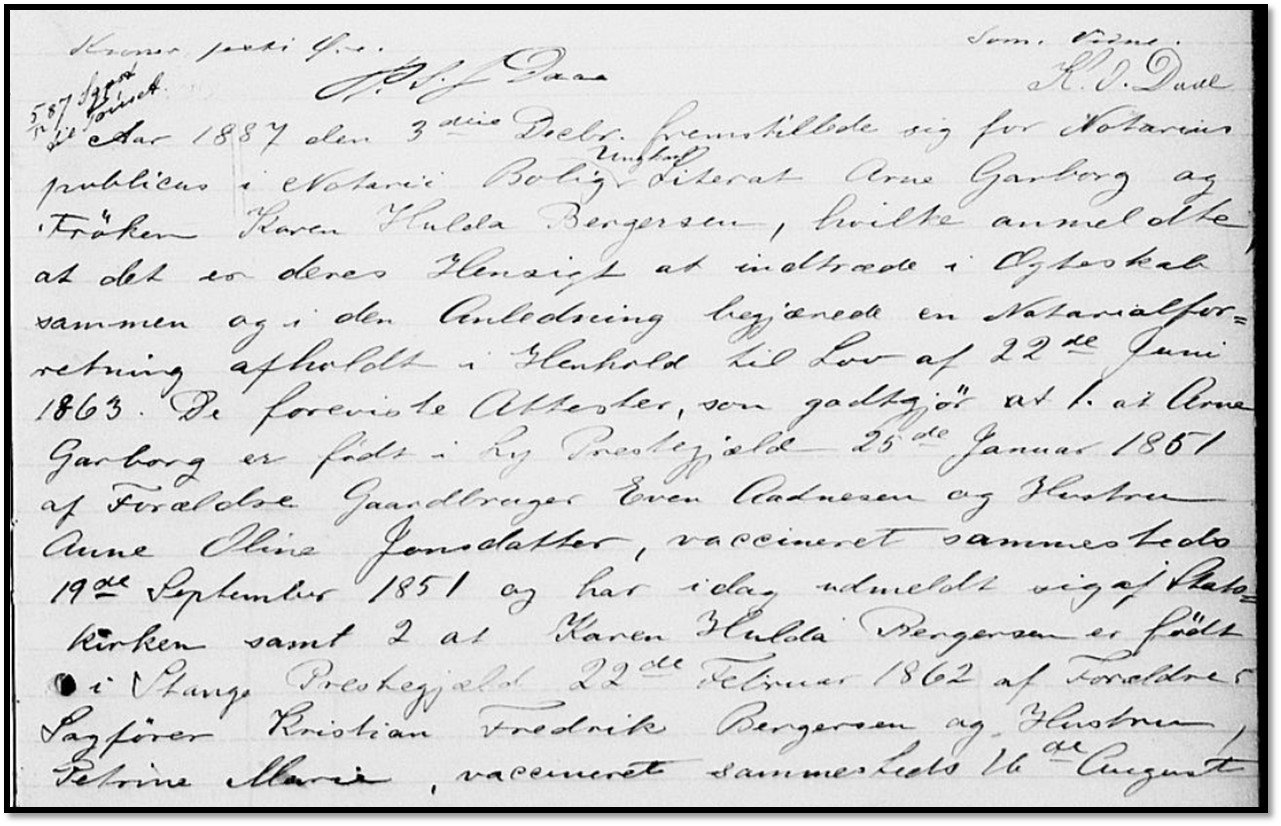 Kroner, sexti Øre. Som Vidne.
P. S. J. Daae K. O. Daae
587 Sgnd
Aar 1887 den 3die Decbr. fremstillede sig for Notarius
Ungkarl
publicus i Notarii Bolig Literat Arne Garborg og
Fröken Karen Hulda Bergersen, hvilke anmeldte,
at det er deres Hensigt at indtræde i Ægteskab
sammen og i den Anledning begjærede en Notarialfor=
retning afholdt i Henhold til Lov af 22de Juni
1863. De foreviste Attester, som godtgjör at 1. at Arne
Garborg er födt i Ly Prestegjæld 25de Januar 1851
af Forældre Gaardbruger Even Aadnesen og Hustru
Anne Oline Jonsdatter, vaccineret sammesteds
19de September 1851 og har idag udmeldt sig af Stats=
kirken samt 2 at Karen Hulda Bergersen er födt
i Stange Prestegjæld 22de Februar 1862 af Forældre
Sagförer Kristian Fredrik Bergersen og Hustru,
Petrine Marie, vaccineret sammesteds 16de August